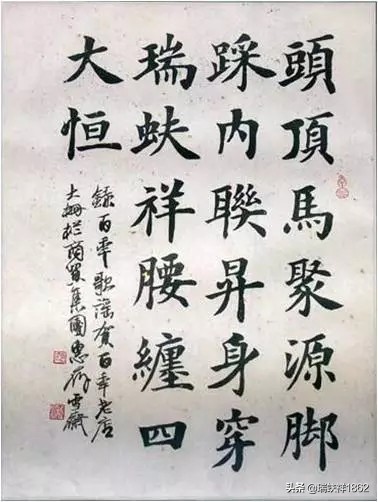 頭頂馬聚源脚
踩内聯昇身穿
瑞蚨祥腰纏四
大恒
錄百年歌謠賀百年老店
大栅栏商貿集團惠存
头条 @瑞蚨祥1862